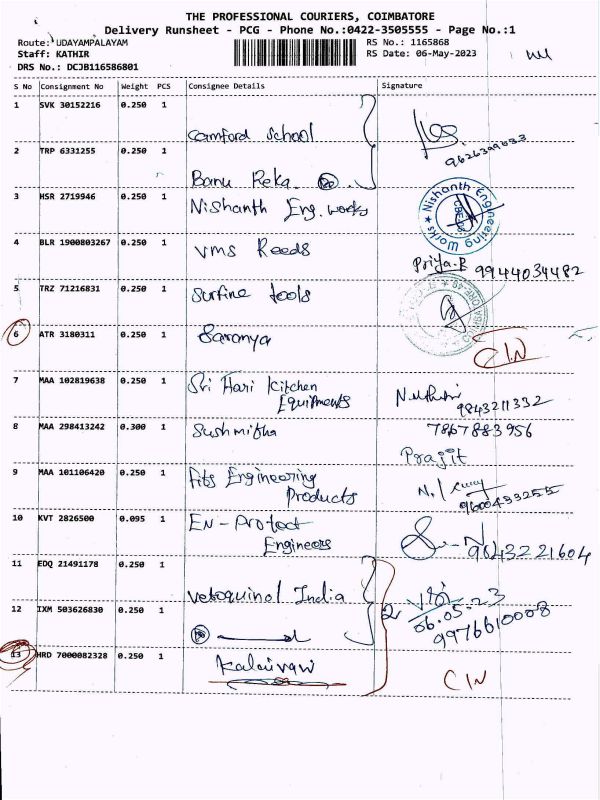 THE PROFESSIONAL COURIERS, COIMBATORE
Delivery Runsheet - PCG - Phone No.:0422-3505555 - Page No.:1
Route: UDAYAMPALAYAM
RS No.: 1165868
Staff: KATHIR
RS Date: 06-May-2023
DRS No.: DCJB116586801
S No Consignment No Weight PCS Consignee Details Signature
1 SVK 30152216 0.250 1 Camford School
2 TRP 6331255 0.250 1 Banu Reka.
3 HSR 2719946 0.250 1 Nishanth Eng. works
Nishanth Engineering Works
4 BLR 1900803267 0.250 1 VMS Reeds
Priya.R 9944034482
5 TRZ 71216831 0.250 1 Surfine tools
6 ATR 3180311 0.250 1 Saranya CIN
7 MAA 102819638 0.250 1 Sri Hari Kitchen
Equipments
9843211332
8 MAA 298413242 0.300 1 Sushmitha 7867883956
Prajit
9 MAA 101106420 0.250 1 Fits Engineering
Products
9600493255
10 KVT 2826500 0.095 1 En-Protect
Engineers
9643221604
11 EDQ 21491178 0.250 1 Vetoquinol India
2
06.05.23
12 IXM 503626830 0.250 1
9976610008
13 HRD 7000082328 0.250 1 Kalaivani CIN